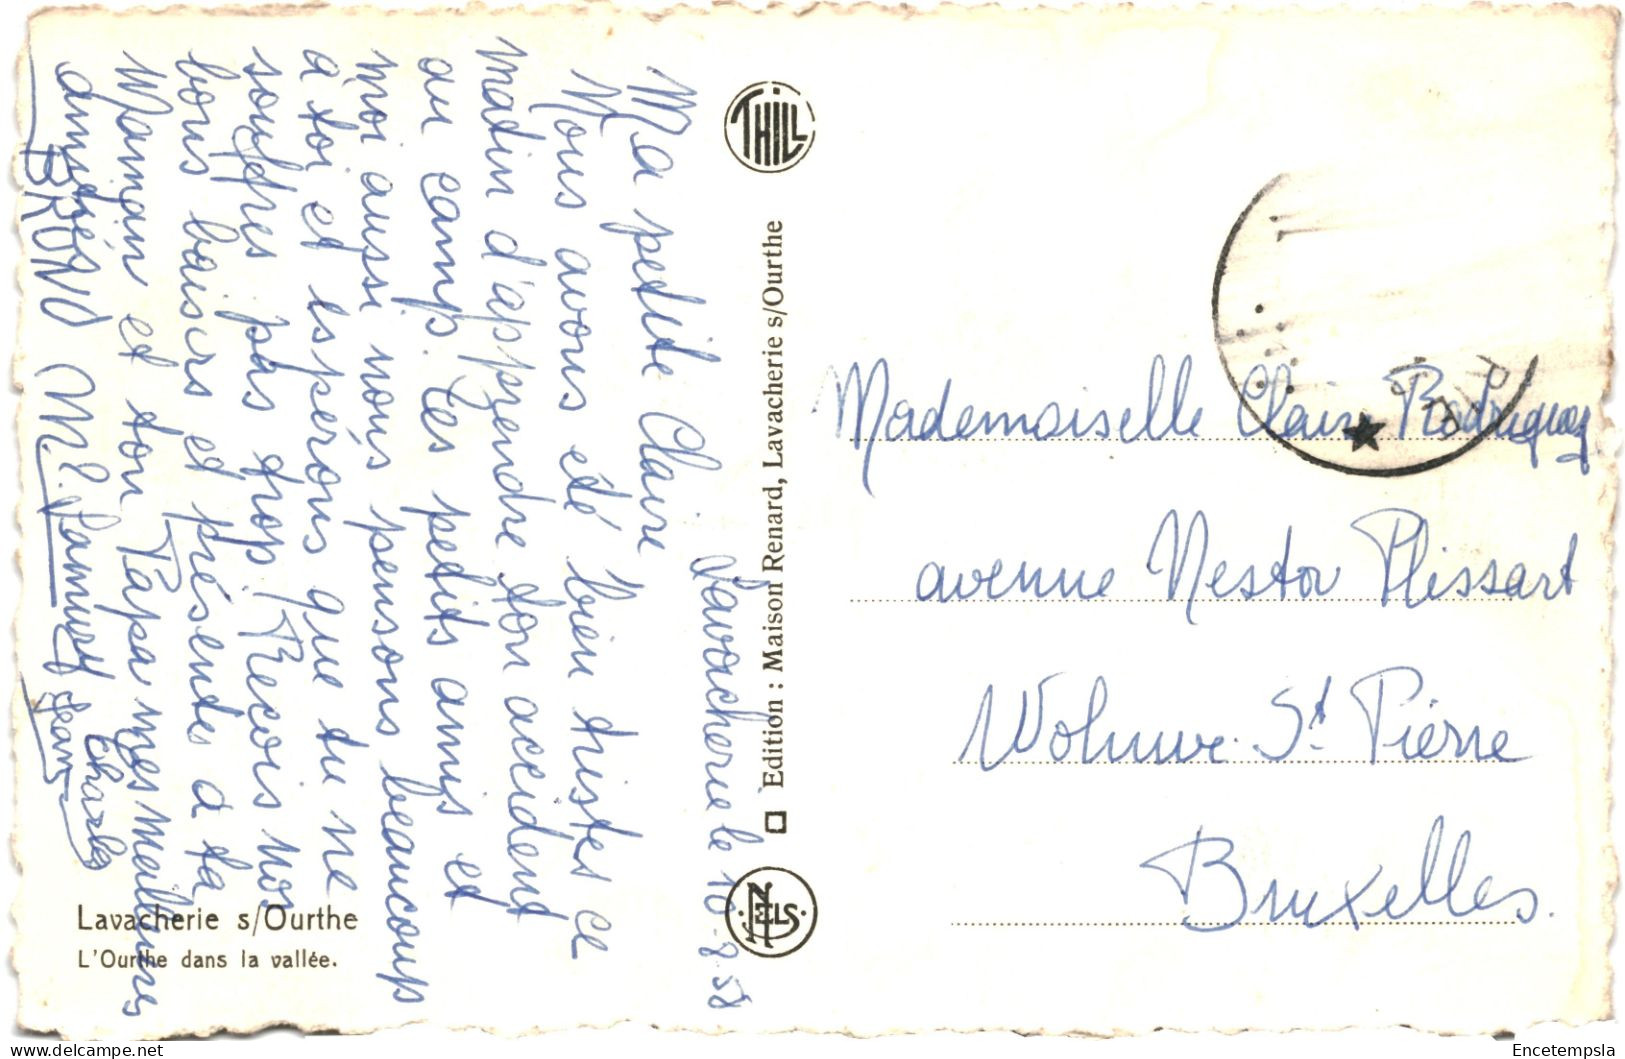 Lavacherie le 10-8-58
Ma petite Claire
Nous avons été bien tristes ce
matin d'apprendre ton accident
au camp. Tes petits amis et
moi aussi nous pensons beaucoup
à toi et espérons que tu ne
souffres pas trop. Recois nos
bons baisers et présentes à ta
Maman et ton Papa mes meilleures
amitiés
BRUNO
Jean
Charles
Lavacherie s/Ourthe
L'Ourthe dans la vallée.
THILL
Edition : Maison Renard, Lavacherie s/Ourthe
NELS
Mademoiselle Claire
avenue Nestor Plissart
Woluwe St Pierre
Bruxelles.
Encetempsla